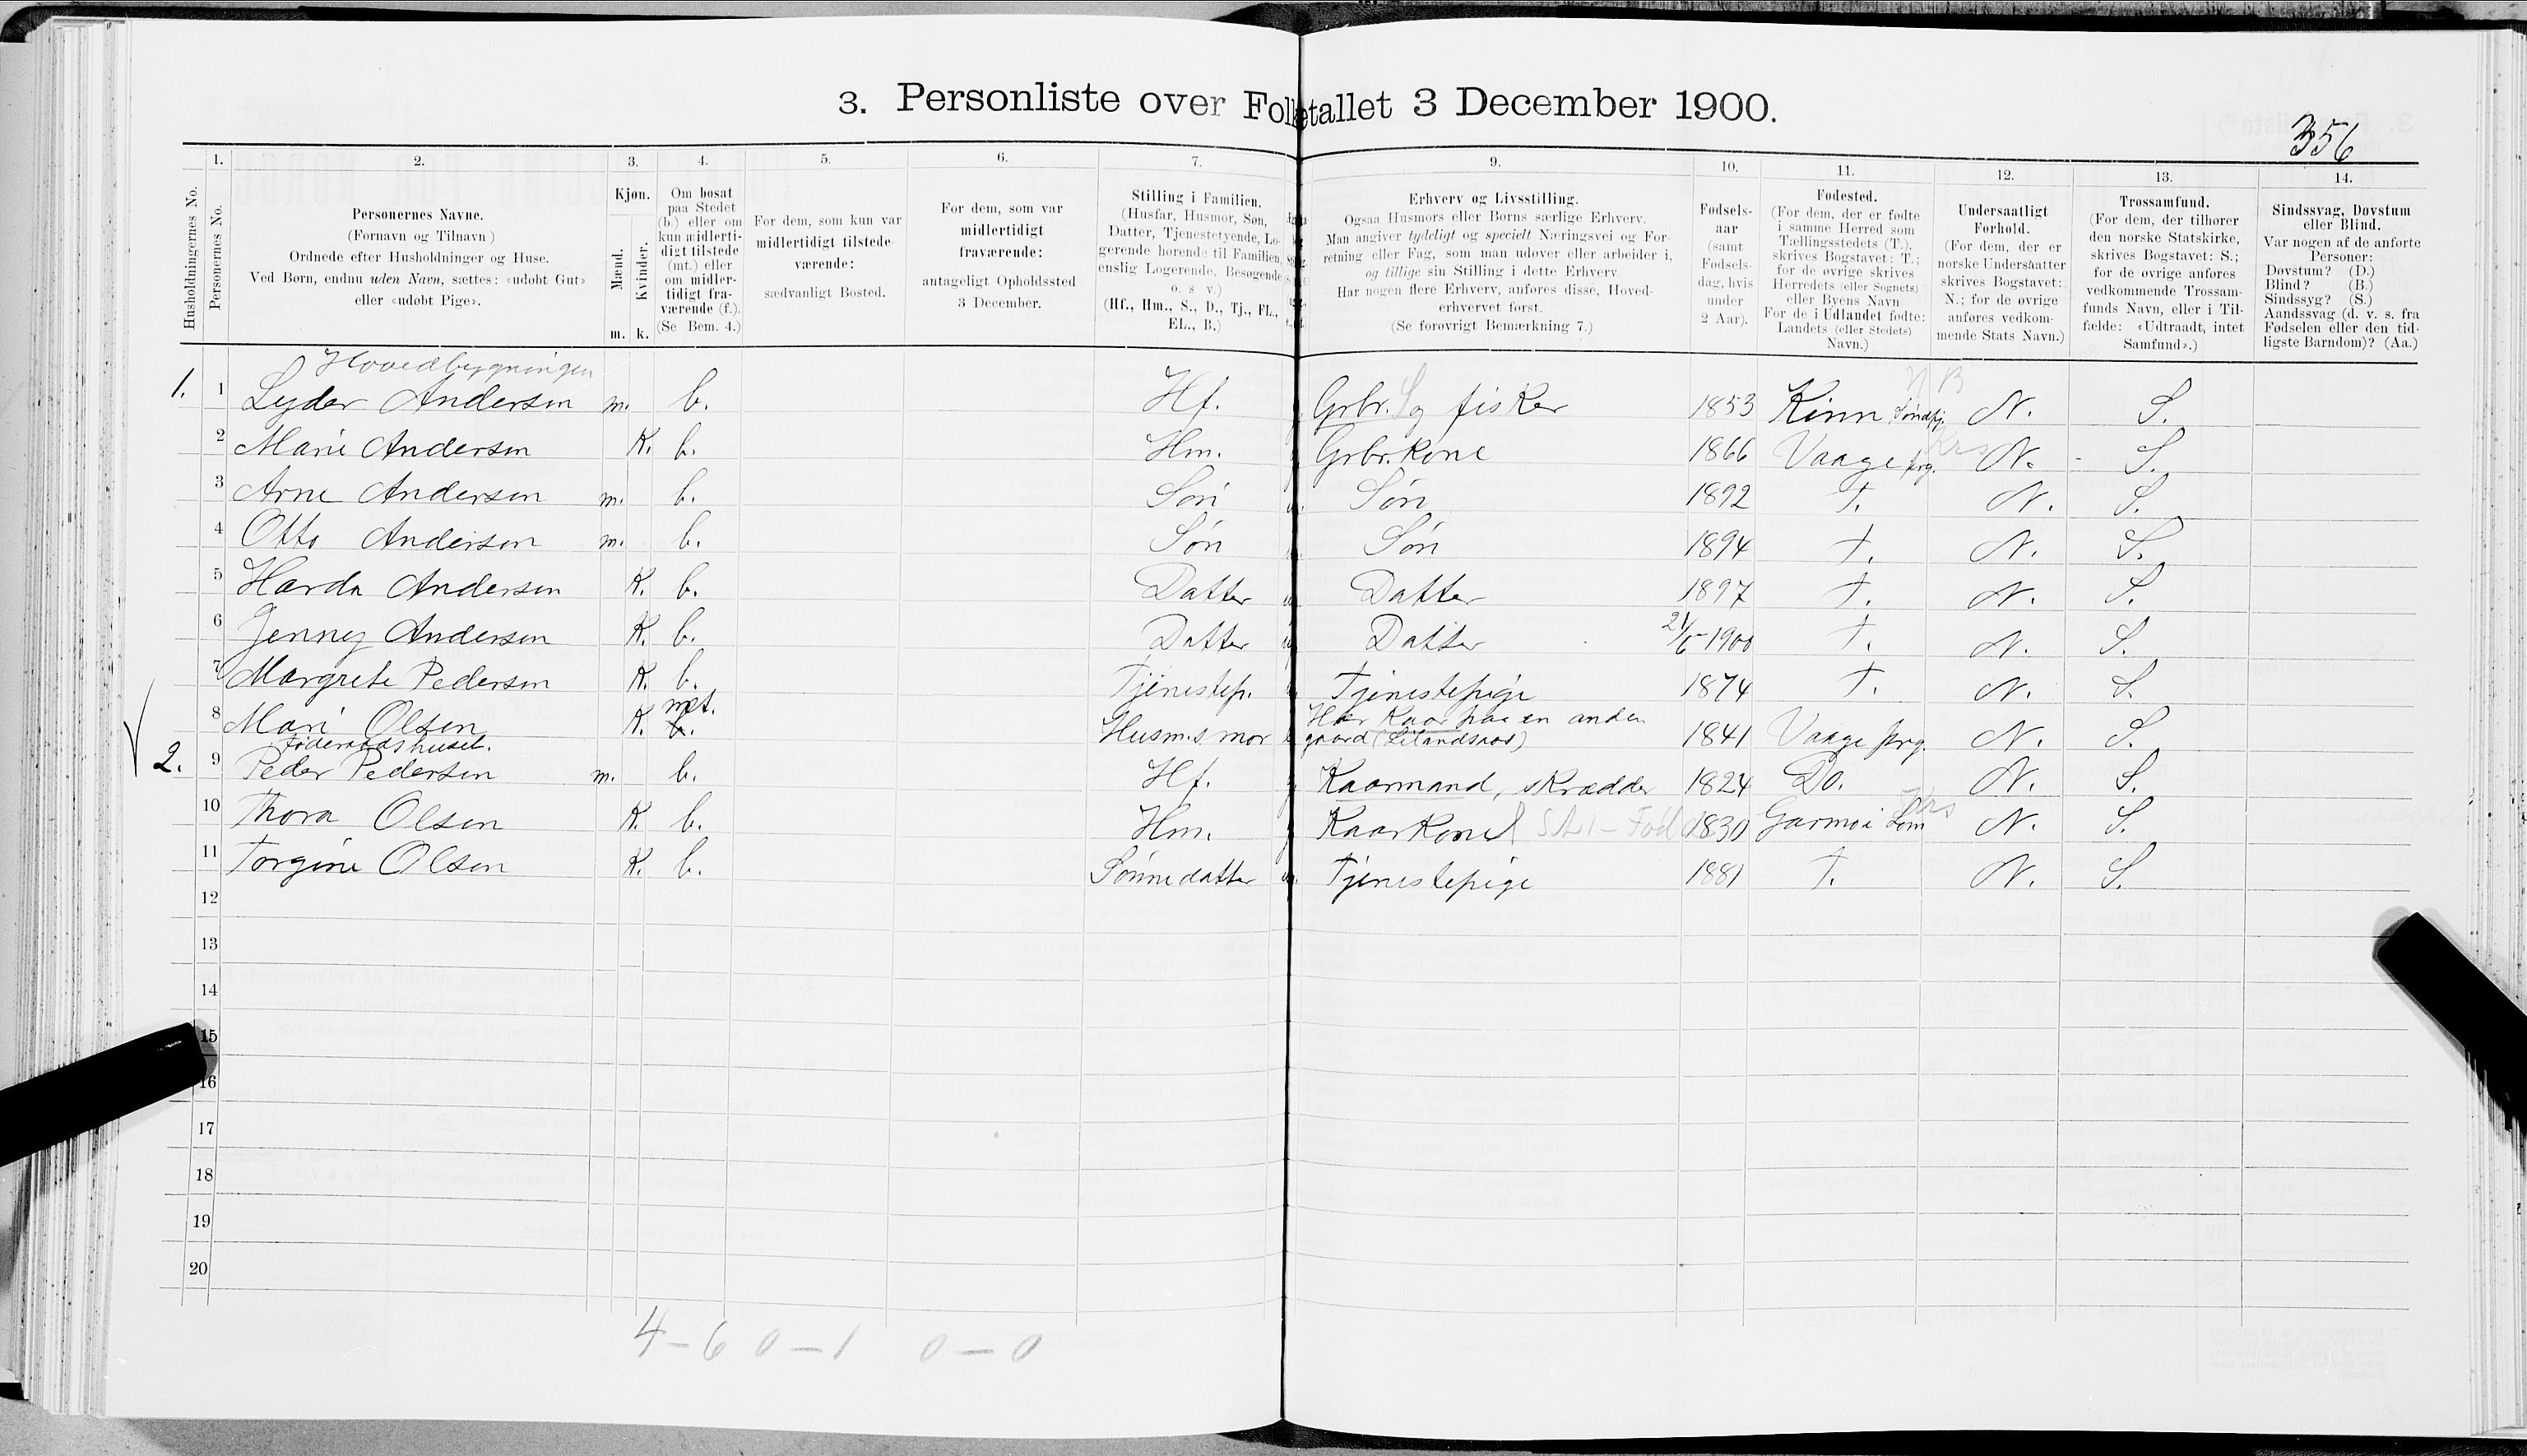 3. Personliste over Folketallet 3 December 1900.
356
1. 2. 3. 4. 5. 6. 7. 9. 10. 11. 12. 13. 14.
Husholdningernes No.
Personernes No.
Personernes Navne.
(Fornavn og Tilnavn)
Ordnede efter Husholdninger og Huse.
Ved Børn, endnu uden Navn, sættes: «udøbt Gut»
eller «udøbt Pige».
Kjøn.
Mænd.
Kvinder.
m. k.
Om bosat
paa Stedet
(b.) eller om
kun midlerti-
digt tilstede
(mt.) eller
om midler-
tidigt fra-
værende (f.).
(Se Bem. 4.)
For dem, som kun var
midlertidigt tilstede-
værende:
sædvanligt Bosted.
For dem, som var
midlertidigt
fraværende:
antageligt Opholdssted
3 December.
Stilling i Familien.
(Husfar, Husmor, Søn,
Datter, Tjenestetyende, Lo-
gerende hørende til Familien,
enslig Logerende, Besøgende
o. s. v.)
(Hf., Hm., S., D., Tj., FL.,
EL., B.)
Erhverv og Livsstilling.
Ogsaa Husmors eller Børns særlige Erhverv.
Man angiver tydeligt og specielt Næringsvei og For-
retning eller Fag, som man udøver eller arbeider i,
og tillige sin Stilling i dette Erhverv
Har nogen flere Erhverv, anføres disse, Hoved-
erhvervet først.
(Se forøvrigt Bemærkning 7.)
Fødsels-
aar
(samt
Fødsels-
dag, hvis
under
2 Aar).
Fødested.
(For dem, der er fødte
i samme Herred som
Tællingsstedets (T.),
skrives Bogstavet: T.;
for de øvrige skrives
Herredets (eller Sognets)
eller Byens Navn
For de i Udlandet fødte:
Landets (eller Stedets)
Navn.)
Undersaatligt
Forhold.
(For dem, der er
norske Undersaatter
skrives Bogstavet:
N.; for de øvrige
anføres vedkom-
mende Stats Navn.)
Trossamfund.
(For dem, der tilhører
den norske Statskirke,
skrives Bogstavet: S.;
for de øvrige anføres
vedkommende Trossam-
funds Navn, eller i Til-
fælde: «Udtraadt, intet
Samfund».)
Sindssvag, Døvstum
eller Blind.
Var nogen af de anførte
Personer:
Døvstum? (D.)
Blind? (B.)
Sindssyg? (S.)
Aandssvag (d. v. s. fra
Fødselen eller den tid-
ligste Barndom)? (Aa.)
Hovedbygningen
1. 1 Lyder Andersen m. b. Hf. g Grbr. og fisker 1853 Kinn Søndfj. N. S.
2 Marie Andersen K. b. Hm. g Grbr. Kone 1866 Vaage prg. N. S.
3 Arne Andersen m. b. Søn u. Søn 1892 T. N. S.
4 Otto Andersen m. b. Søn u. Søn 1894 T. N. S.
5 Harda Andersen K. b. Datter u. Datter 1897 T. N. S.
6 Jenny Andersen K. b. Datter u. Datter 21/6-1900 T. N. S.
7 Margrete Pedersen K. b. Tjenestep. Tjenestepige 1874 T. N. S.
8 Mari Olsen K. mt. b. Husm.s mor Har Kaar paa en anden
gaard 1841 Vaage prg. N. S.
Føderaadshuset.
2. 9 Peder Pedersen m. b. Hf. g Kaarmand, skrædder 1824 Do. N. S.
10 Thora Olsen K. b. Hm. g Kaarkone 1830 Garmo i Lom N. S.
11 Torgine Olsen K. b. Sønnedatter u. Tjenestepige 1881 T. N. S.
12
13
14
15
16
17
18
19
20
4 - 6 0 - 1 0 - 0